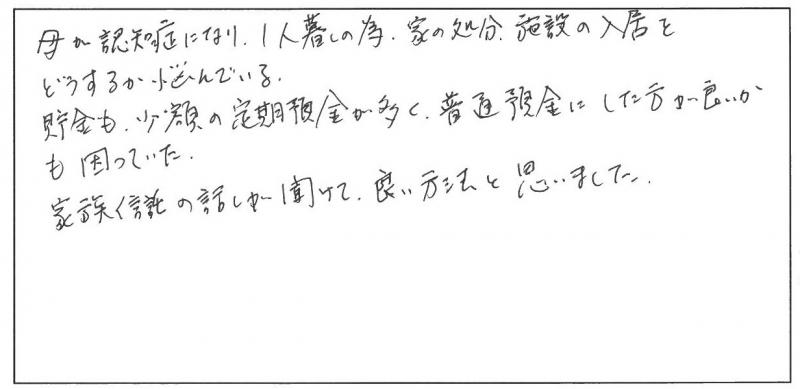 母が認知症になり、1人暮しの為、家の処分、施設の入居を
どうするか悩んでいる。
貯金も、少額の定期預金が多く、普通預金にした方が良いか
も困っていた。
家族信託の話しが聞けて、良い方法と思いました。